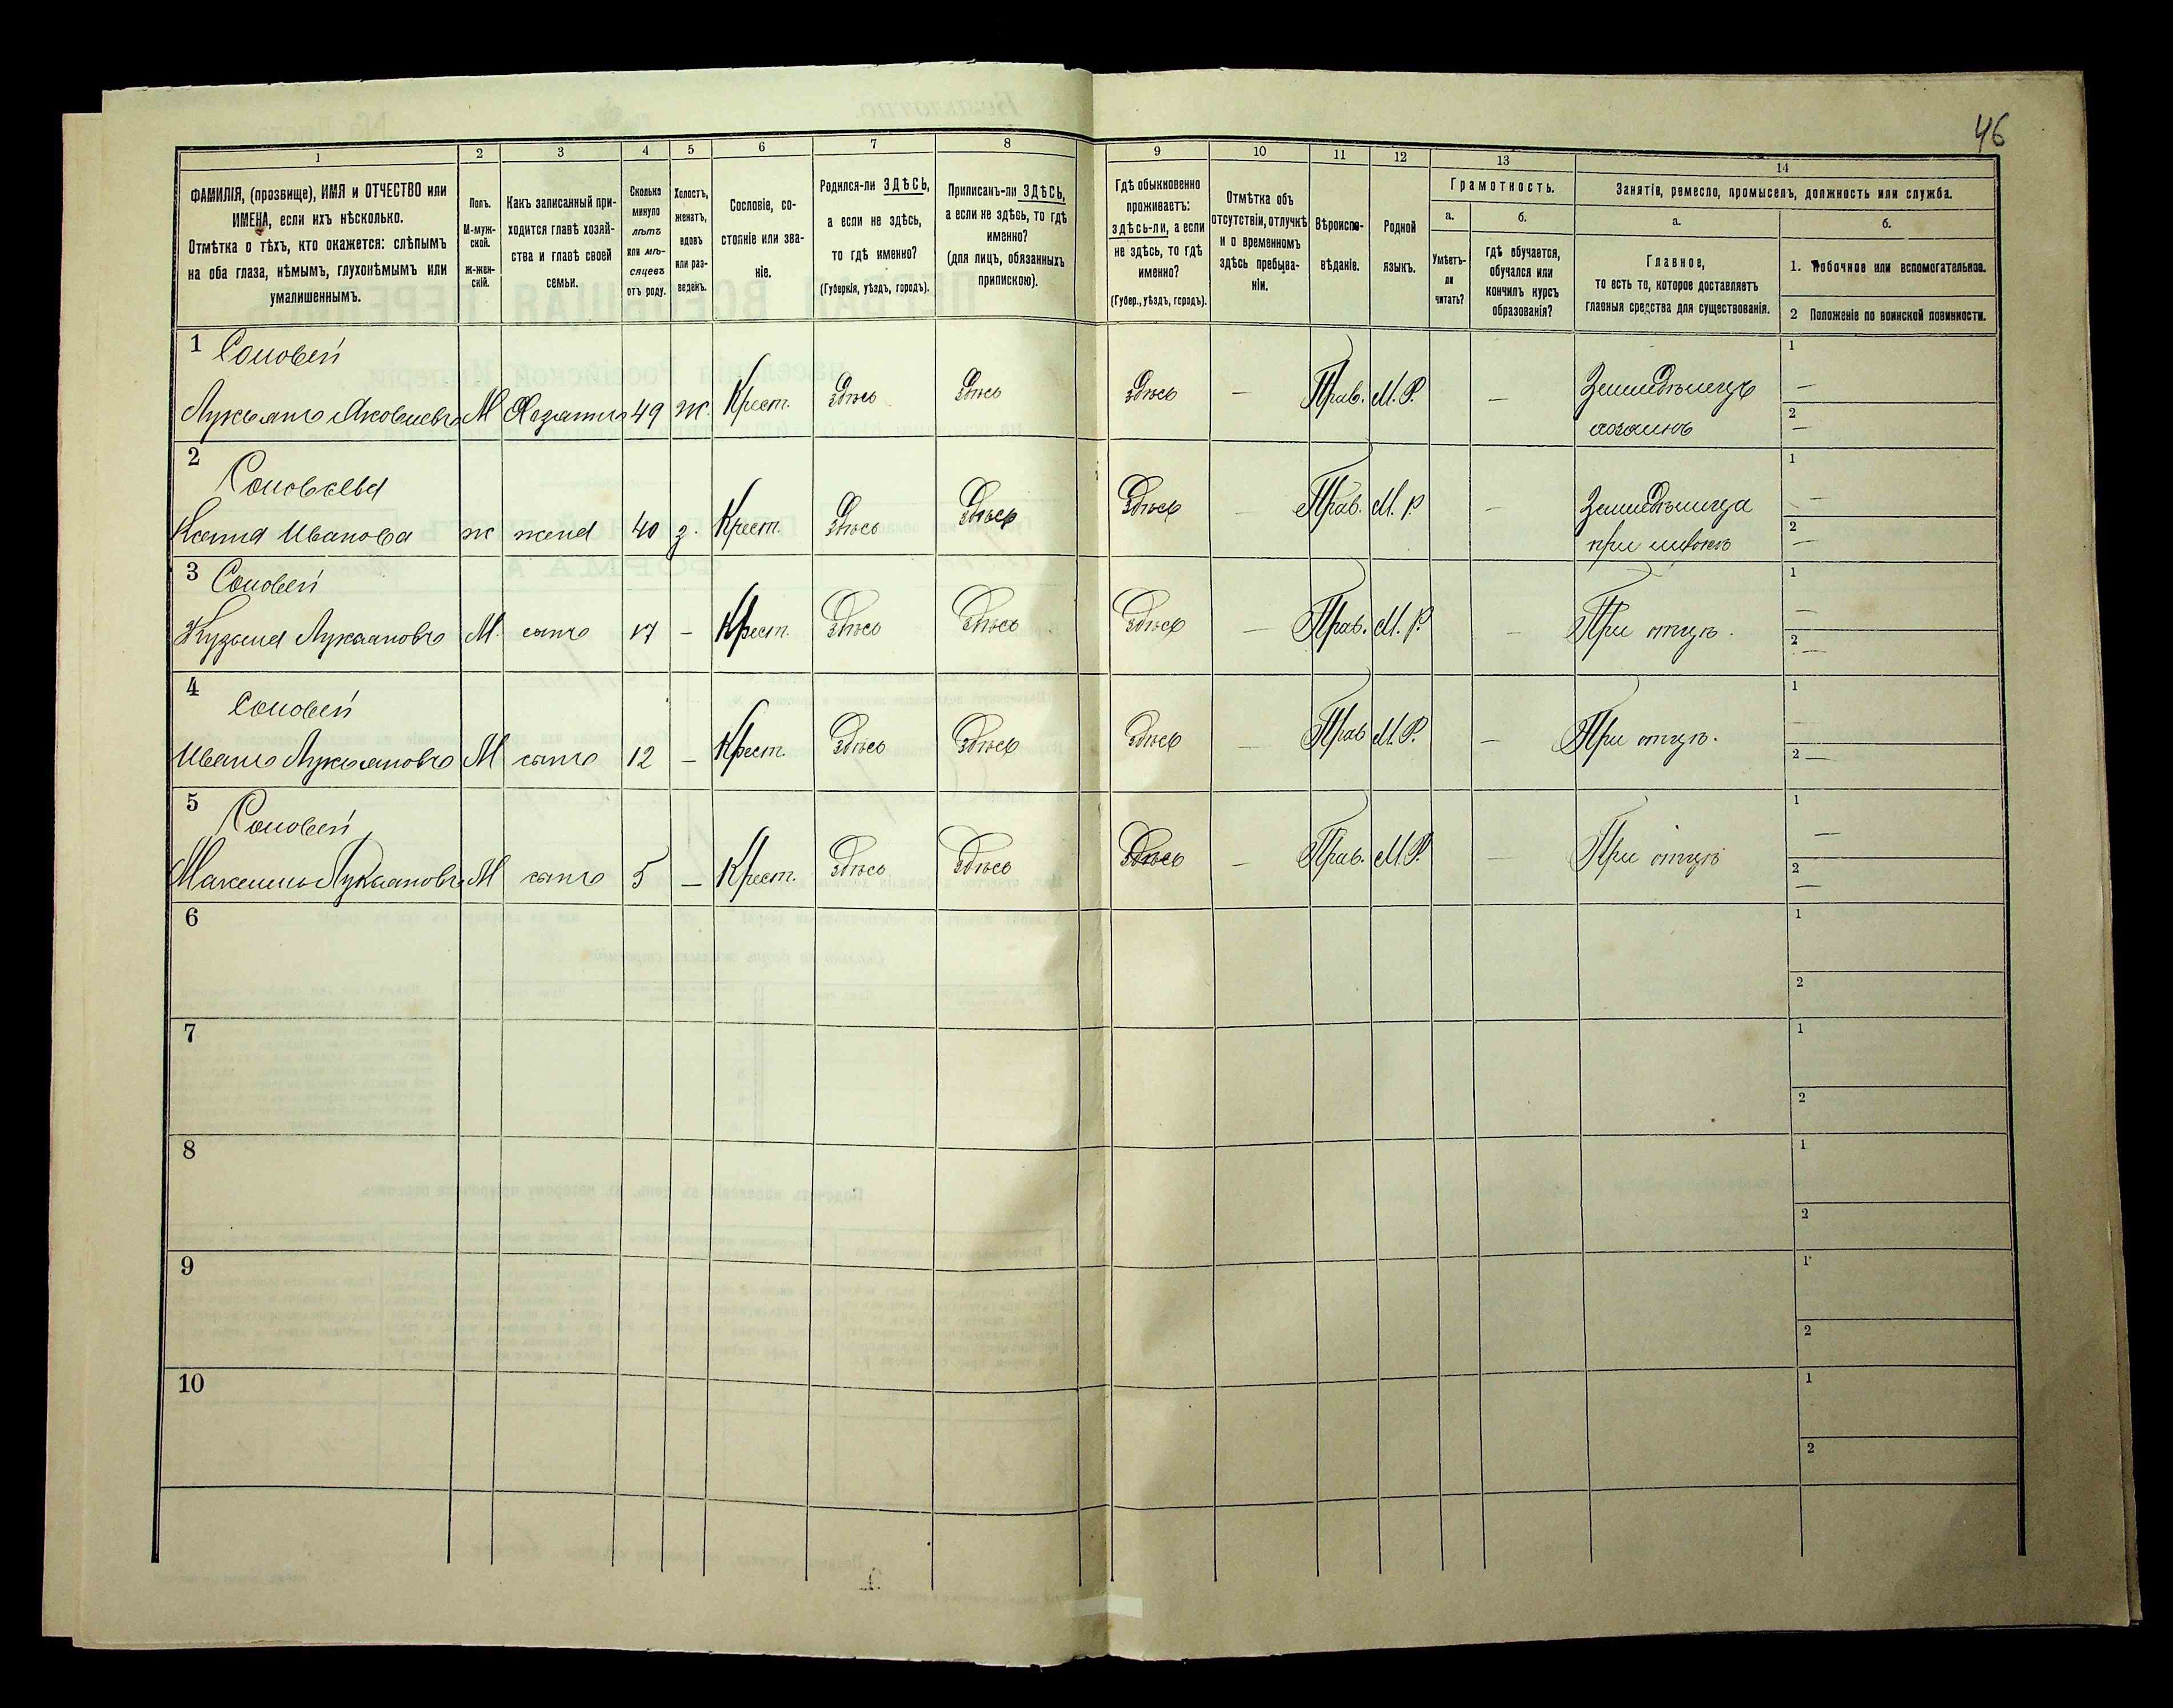 46
1 2 3 4 5 6 7 8 9 10 11 12 13 14
ФАМИЛІЯ, (прозвище), ИМЯ и ОТЧЕСТВО или
ИМЕНА, если ихъ нѣсколько.
Отмѣтка о тѣхъ, кто окажется: слѣпымъ
на оба глаза, нѣмымъ, глухонѣмымъ или
умалишеннымъ.
Полъ.
М-муж-
ской.
ж-жен-
скій.
Какъ записанный при-
ходится главѣ хозяй-
ства и главѣ своей
семьи.
Сколько
минуло
лѣтъ
или мѣ-
сяцевъ
отъ роду.
Холостъ,
женатъ,
вдовъ
или раз-
веденъ.
Сословіе, со-
стояніе или зва-
ніе.
Родился-ли ЗДѢСЬ,
а если не здѣсь,
то гдѣ именно?
(Губернія, уѣздъ, городъ).
Приписанъ-ли ЗДѢСЬ,
а если не здѣсь, то гдѣ
именно?
(для лицъ, обязанныхъ
припискою).
Гдѣ обыкновенно
проживаетъ:
здѣсь-ли, а если
не здѣсь, то гдѣ
именно?
(Губер., уѣздъ, городъ).
Отмѣтка объ
отсутствіи, отлучкѣ
и о временномъ
здѣсь пребыва-
ніи.
Вѣроиспо-
вѣданіе.
Родной
языкъ.
Грамотность.
а.
Умѣетъ-
ли
читать?
б.
гдѣ обучается,
обучался или
кончилъ курсъ
образованія?
Занятіе, ремесло, промыселъ, должность или служба.
а.
Главное,
то есть то, которое доставляетъ
главныя средства для существованія.
б.
1. Побочное или вспомогательное.
2 Положеніе по воинской повинности.
1 Соловей
Лукьянъ Яковлевъ М Хозяинъ 49 ж. Крест. Здѣсь Здѣсь Здѣсь — Прав. М.Р. — Земледѣлецъ 1 —
хозяинъ 2 —
2 Соловьева
Ксенія Иванова ж жена 40 з. Крест. Здѣсь Здѣсь Здѣсь — Прав. М.Р — Земледѣлица 1 —
при 2 —
3 Соловей
Кузьма Лукьяновъ М. сынъ 17 — Крест. Здѣсь Здѣсь Здѣсь — Прав. М.Р. — При отцѣ. 1 —
2 —
4 Соловей
Иванъ Лукьяновъ М сынъ 12 — Крест. Здѣсь Здѣсь Здѣсь — Прав М.Р. — При отцѣ. 1 —
2 —
5 Соловей
Максимъ Лукьяновъ М сынъ 5 — Крест. Здѣсь Здѣсь Здѣсь — Прав. М.Р. — При отцѣ 1 —
2 —
6 1
2
7 1
2
8 1
2
9 1
2
10 1
2